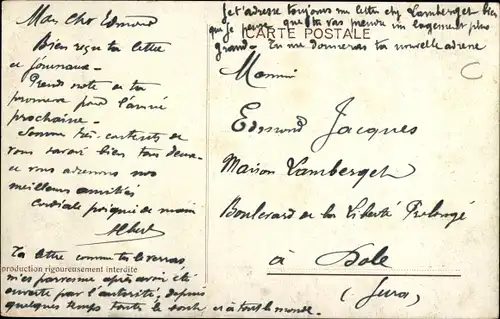 Mon cher Edmond
Bien reçu ta lettre
et journaux -
Prends note de ta
promesse pour l'année
prochaine -
Sommes très contents de
vous savoir bien tous deux -
et vous adressons nos
meilleurs amitiés
Cordiale poignée de main
Albert
Ta lettre comme tu le verras
production rigoureusement interdite
m'est parvenue après avoir été
ouverte par l'autorité, depuis
quelques temps toute le sont et à tout le monde.
Je t'adresse toujours ma lettre chez Lamberget bien
que je pense que tu vas prendre un logement plus
CARTE POSTALE
grand - Tu me donneras ta nouvelle adresse
Monsieur
Edmond Jacques
Maison Lamberget
Boulevard de la Liberté Prolongé
à Dole
(Jura)